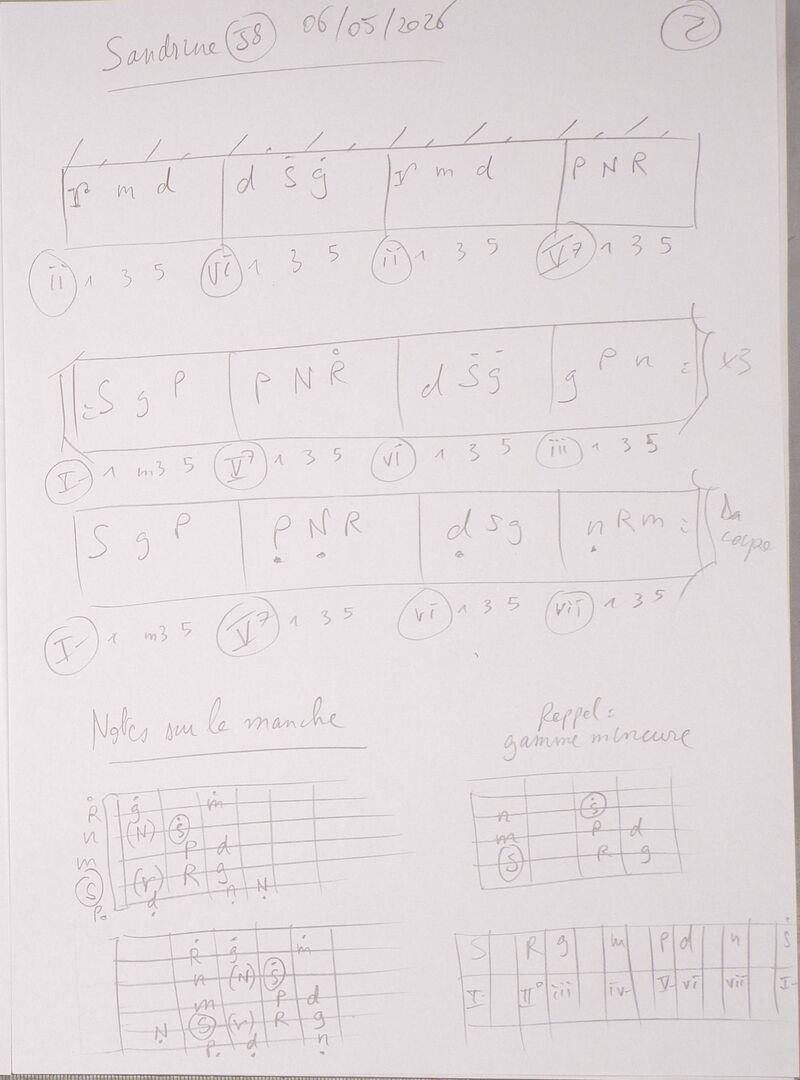 Sandrine 38 06/05/2026 2
r m d d Ṡ ġ r m d P N R
ii 1 3 5 vi 1 3 5 ii 1 3 5 V7 1 3 5
:S g P P N Ṙ d Ṡ ġ g P n : x3
I- 1 m3 5 V7 1 3 5 vi 1 3 5 iii 1 3 5
S g P Ṗ N R ḍ S g ṇ R m : Da
I- 1 m3 5 V7 1 3 5 vi 1 3 5 vii 1 3 5
Notes sur le manche
Rappel:
gamme mineure
Ṙ ġ ṁ
n (N) Ṡ
m P d
S (r) R g
P. ḍ ṇ Ṇ
Ṡ
n
m P d
S R g
Ṙ ġ ṁ
n (N) Ṡ
m P d
Ṇ S (r) R g
P. ḍ ṇ
S R g m P d n Ṡ
I- II° iii iv- V- vi vii I-